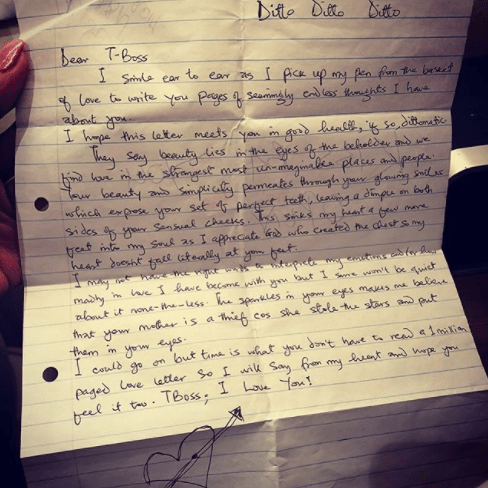 Ditto Ditto Ditto
Dear T-Boss
I smile ear to ear as I pick up my pen from the basket
of love to write you pages of seemingly endless thoughts I have
about you.
I hope this letter meets you in good health, if so, dittomatic
They say beauty lies in the eyes of the beholder and we
find love in the strangest most un-imaginable places and people.
Your beauty and simplicity permeates through your glowing smiles
which expose your set of perfect teeth, leaving a dimple on both
sides of your sensual cheeks. This sinks my heart a few more
feet into my soul as I appreciate God who created the chest so my
heart doesnt fall literally at your feet.
I may not have the right words to interprete my emotions and/or how
madly in love I have become with you but I sure won't be quiet
about it none-the-less. The sparkles in your eyes makes me believe
that your mother is a thief cos she stole the stars and put
them in your eyes.
I could go on but time is what you don't have to read a 1 million
paged love letter so I will say from my heart and hope you
feel it too. TBoss, I Love You!